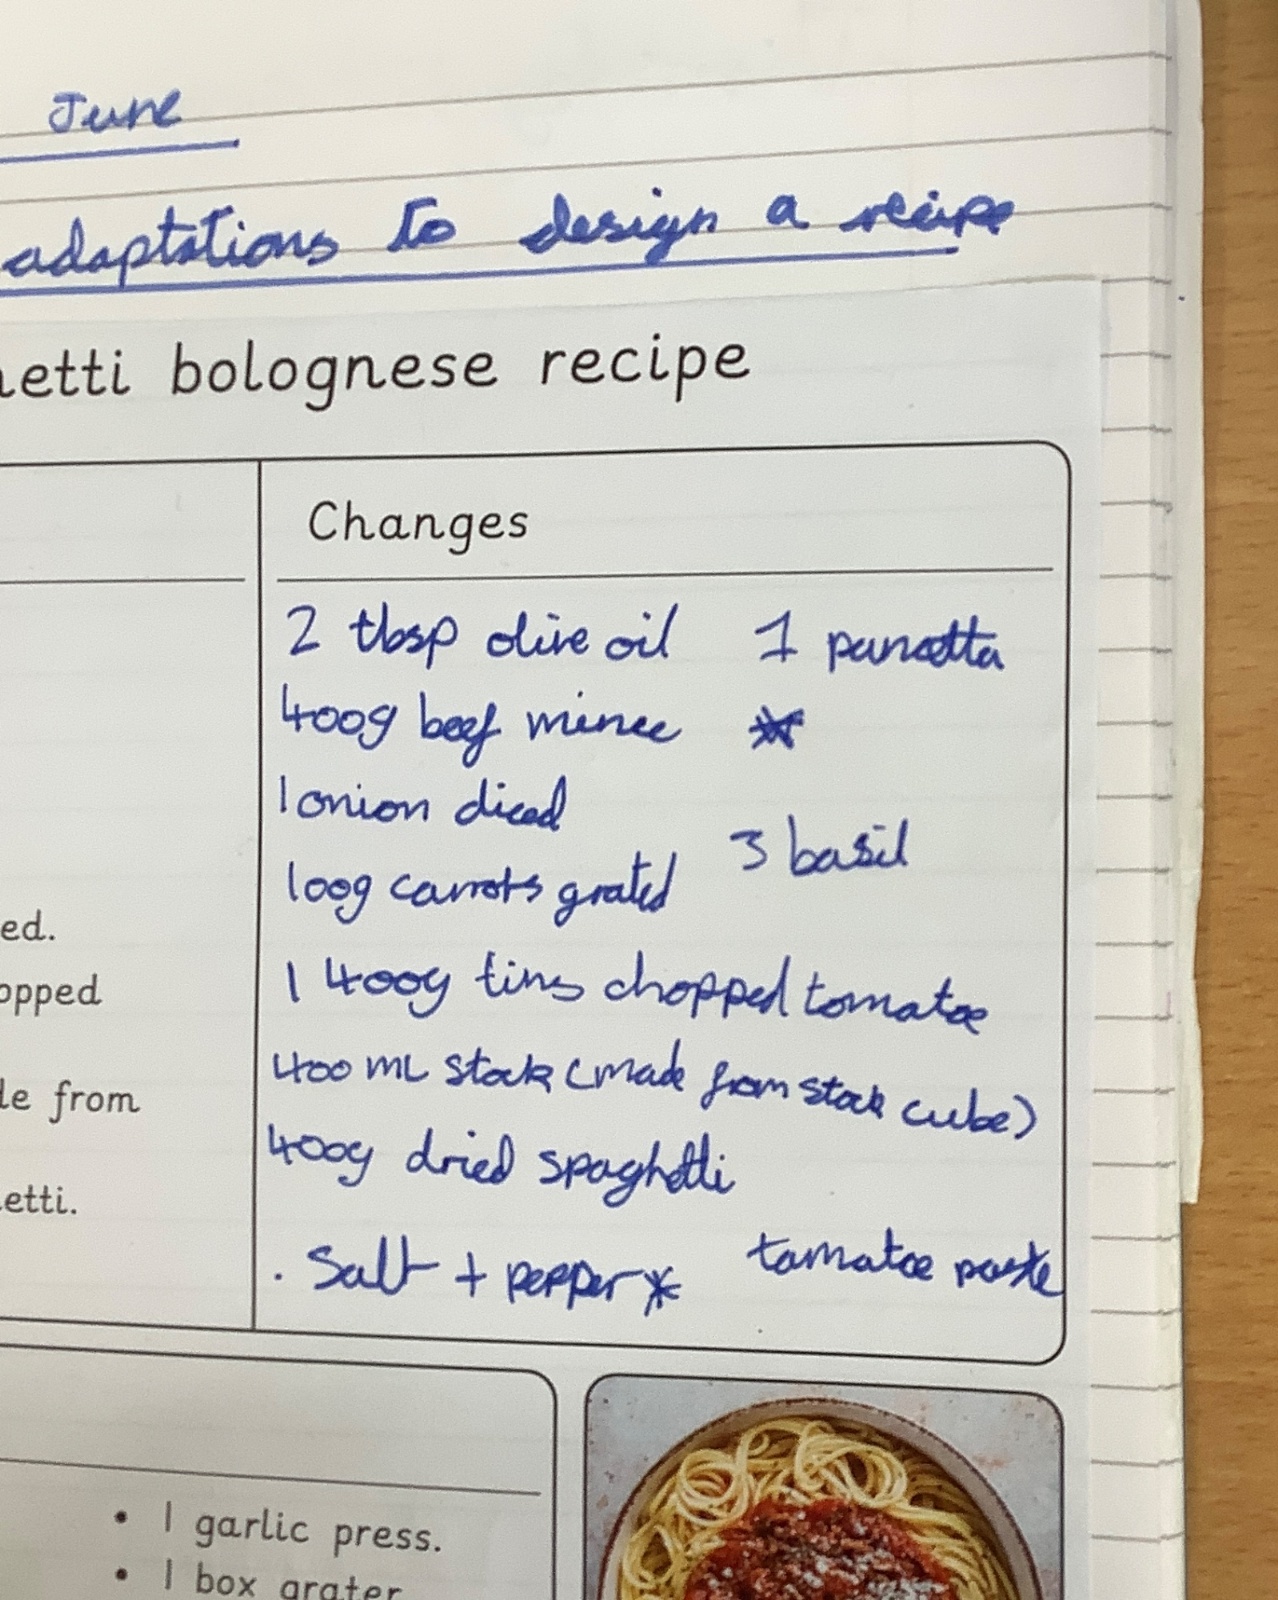 June
adaptations to design a recipe
netti bolognese recipe
Changes
2 tbsp olive oil 1 pancetta
400g beef mince
1 onion diced
3 basil
100g carrots grated
ed.
1 400g tins chopped tomatoe
opped
400 ML stock (made from stock cube)
le from
400g dried spaghetti
etti.
. Salt + pepper* tomatoe paste
• 1 garlic press.
• 1 box grater